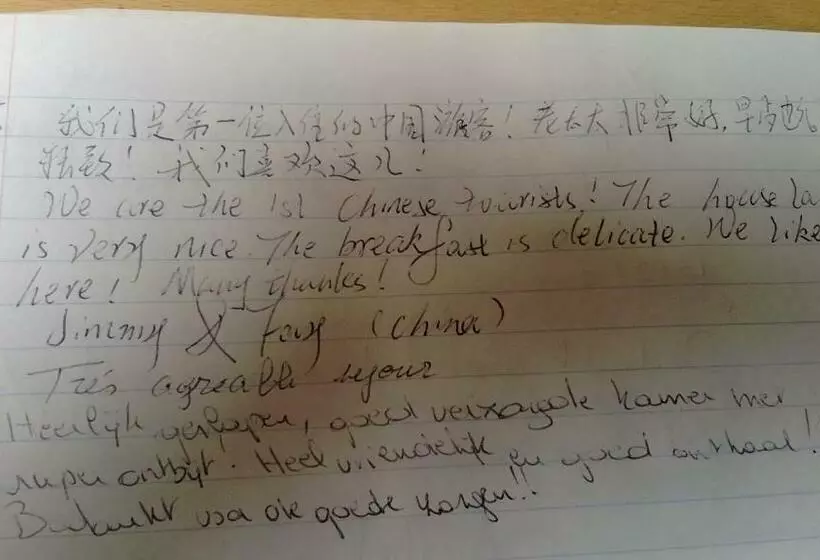 我们是第一位入住的中国游客!老太太非常好,早餐也允
精致!我们喜欢这儿!
We are the 1st Chinese tourists! The house la
is very nice. The breakfast is delicate. We like
here! Many thanks!
Jimmy & Fay (China)
Très agreable sejour
Heerlijk geslapen, goed verzorgde kamer met
super ontbijt. Heel vriendelijk en goed onthaal!
Bedankt voor de goede zorgen!!